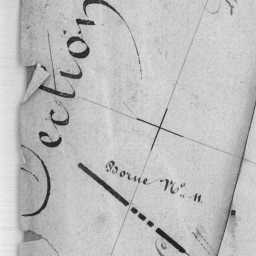 Section
Borne Nº 11